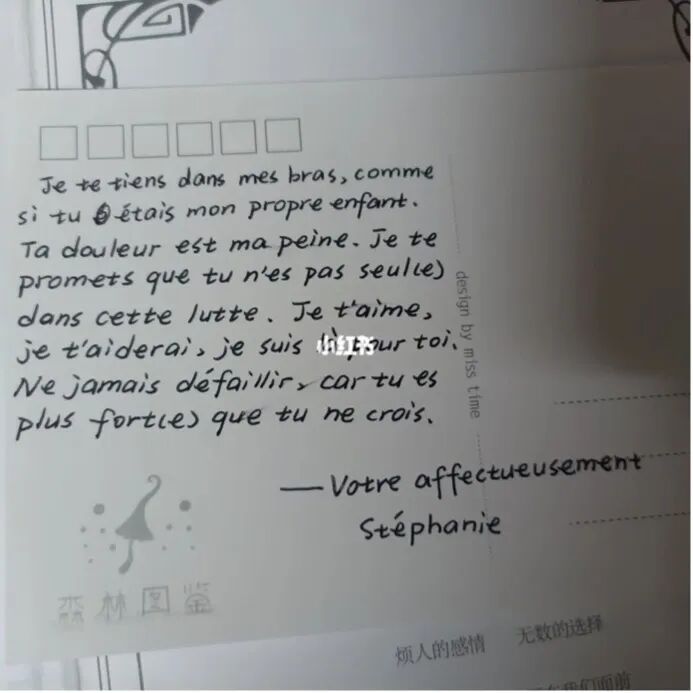 Je te tiens dans mes bras, comme
si tu étais mon propre enfant.
Ta douleur est ma peine. Je te
promets que tu n'es pas seul(e)
dans cette lutte. Je t'aime,
je t'aiderai, je suis là pour toi.
Ne jamais défaillir, car tu es
plus fort(e) que tu ne crois.
— Votre affectueusement
Stéphanie
design by miss time
小红书
森林图鉴
烦人的感情 无数的选择
我们面前